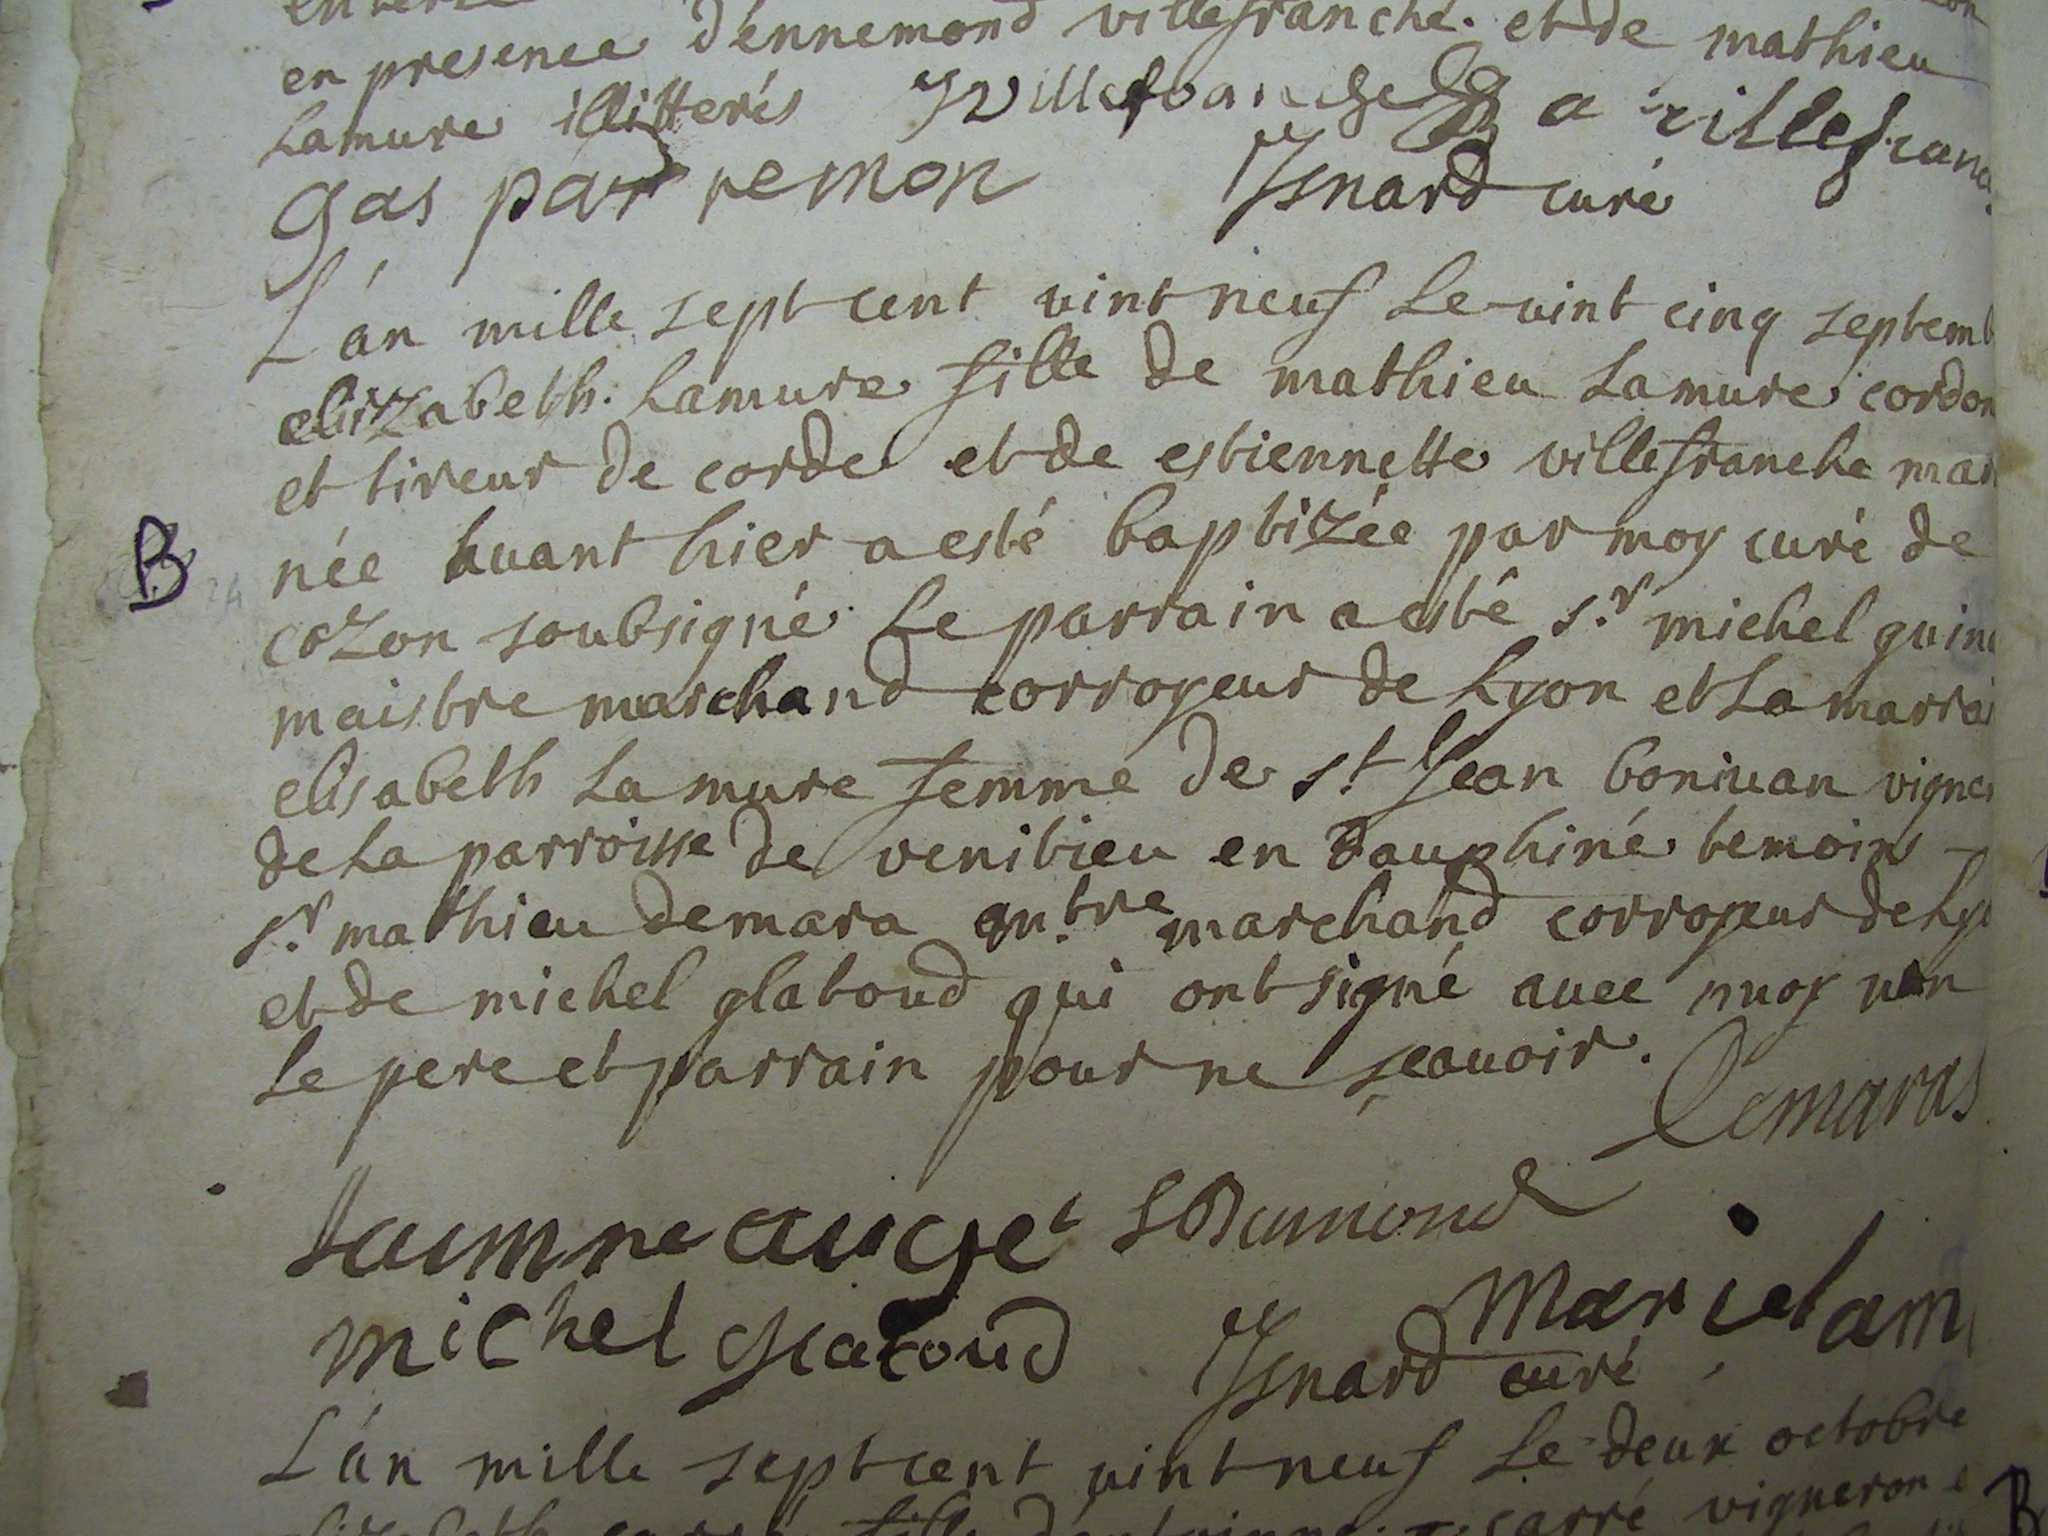 en presence d'ennemond villefranche et de mathieu
Lamure illitterés J villefranche a villefranc
gaspar remon Isnard curé
L'an mille sept cent vint neuf Le vint cinq septemb
elizabeth Lamure fille de mathieu Lamure cordon
et tireur de corde et de estiennette villefranche mar
née avant hier a esté baptizée par moy curé de
cozon soubsigné Le parrain a esté sr. michel guin
maistre marchand corroyeur de Lyon et La marrai
elisabeth Lamure femme de st Jean bonivan vigner
de La parroisse de venitieu en dauphiné temoins
sr. mathieu demara marchand corroyeur de Ly
et de michel glatoud qui ont signé avec moy non
Le pere et parrain pour ne sçavoir. Demaras
auget Dumond
michel glatoud marie lam
Isnard curé
L'an mille sept cent vint neuf Le deux octobre
carré vigneron
B
24
B